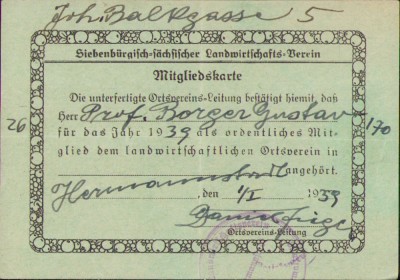 Joh. Balkgasse 5
Siebenbürgisch-sächsischer Landwirtschafts-Verein
Mitgliedskarte
Die unterfertigte Ortsvereins-Leitung bestätigt hiemit, daß
Herr Prof. Borger Gustav
26
170
für das Jahr 1939 als ordentliches Mit-
glied dem landwirtschaftlichen Ortsverein in
angehört.
Hermannstadt, den 1/I 1939
Ortsvereins-Leitung